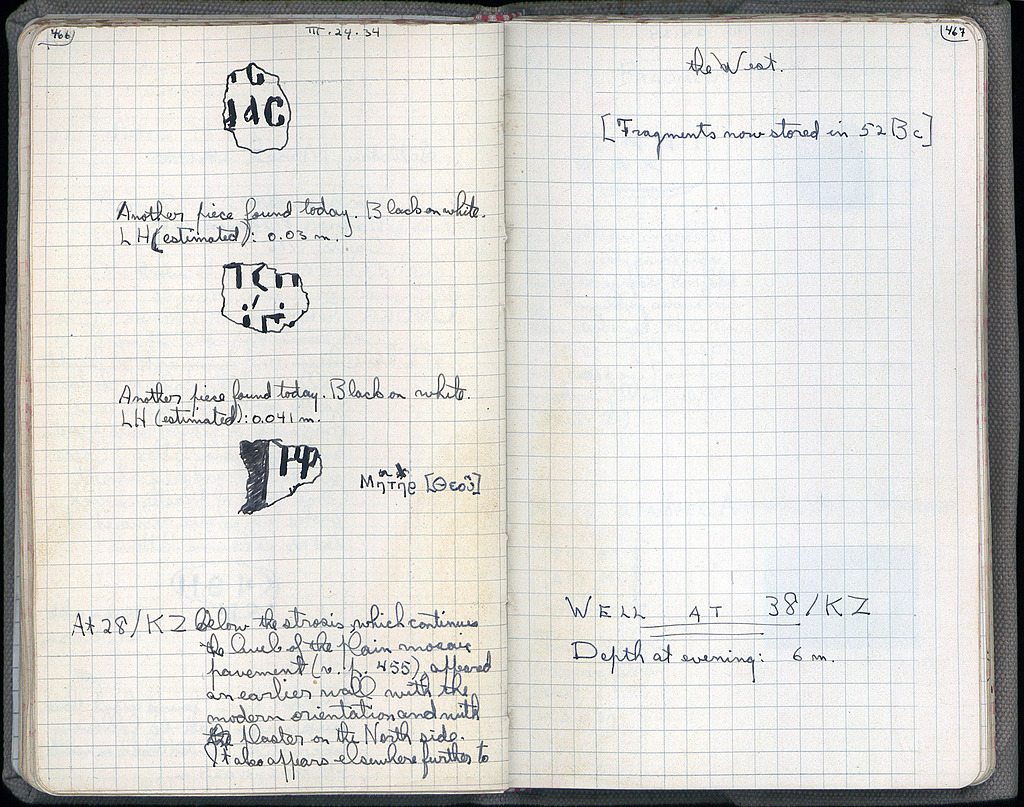 466
III · 24 · 34
Another piece found today. Black on white.
LH (estimated): 0.03 m.
Another piece found today. Black on white.
LH (estimated): 0.041 m.
Μήτηρ [Θεοῦ]
At 28/KZ below the strosis, which continues
the level of the plain mosaic
pavement (v. p. 455), appeared
an earlier wall with the
modern orientation and with
plaster on the North side.
It also appears elsewhere further to
467
the West.
[Fragments now stored in 52 B c]
WELL AT 38/KZ
Depth at evening: 6 m.